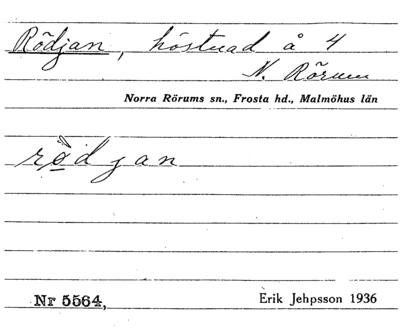 Rödjan, höstnad å 4
N. Rörum
Norra Rörums sn., Frosta hd., Malmöhus län
rødjan
Nr 5564,
Erik Jehpsson 1936